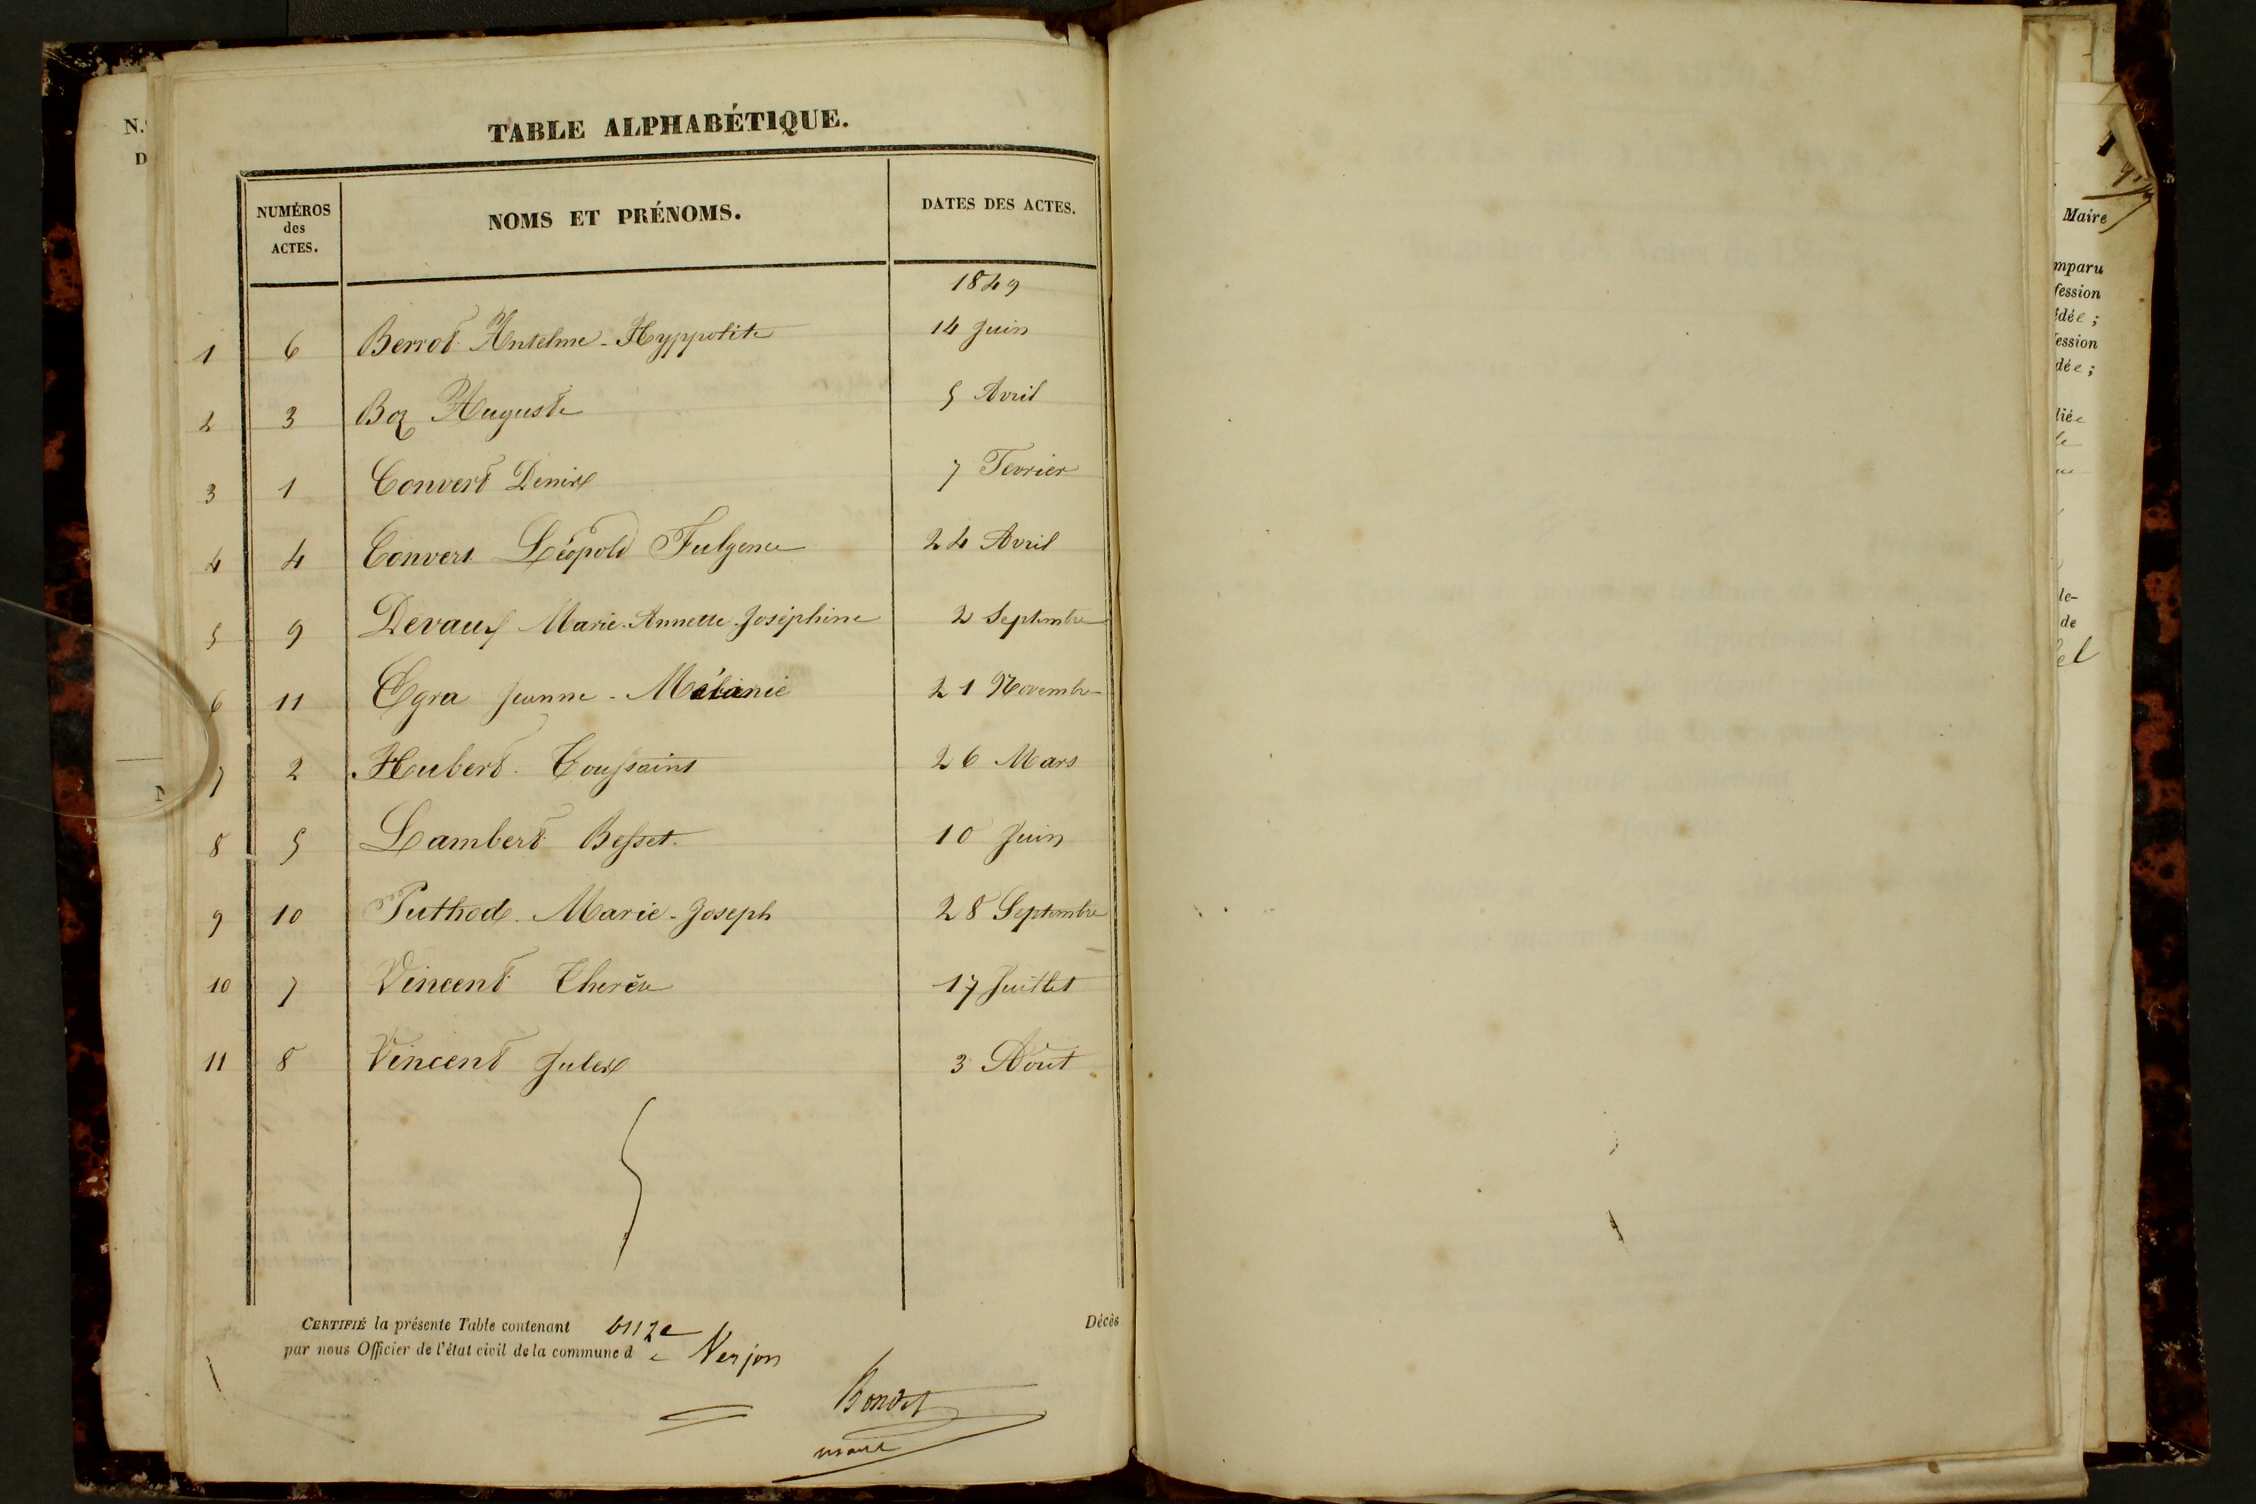 N.
D
TABLE ALPHABÉTIQUE.
NUMÉROS
des
ACTES.
NOMS ET PRÉNOMS.
DATES DES ACTES.
1849
1 6 Berrod Anselme-Hyppolite 14 Juin
2 3 Boz Auguste 5 Avril
3 1 Convert Denis 7 Fevrier
4 4 Convert Léopold Fulgence 24 Avril
5 9 Devaux Marie-Annette-Joséphine 2 Septembre
6 11 Egra Jeanne-Mélanie 21 Novembre
7 2 Hubert Toussaint 26 Mars
8 5 Lambert Besset 10 Juin
9 10 Puthod Marie-Joseph 28 Septembre
10 7 Vincent Therèse 17 Juillet
11 8 Vincent Jules 3 Août
CERTIFIÉ la présente Table contenant onze Décès
par nous Officier de l'état civil de la commune de Verjon
Bondet
maire
Maire
mparu
fession
dée ;
ession
dée ;
liée
le-
de